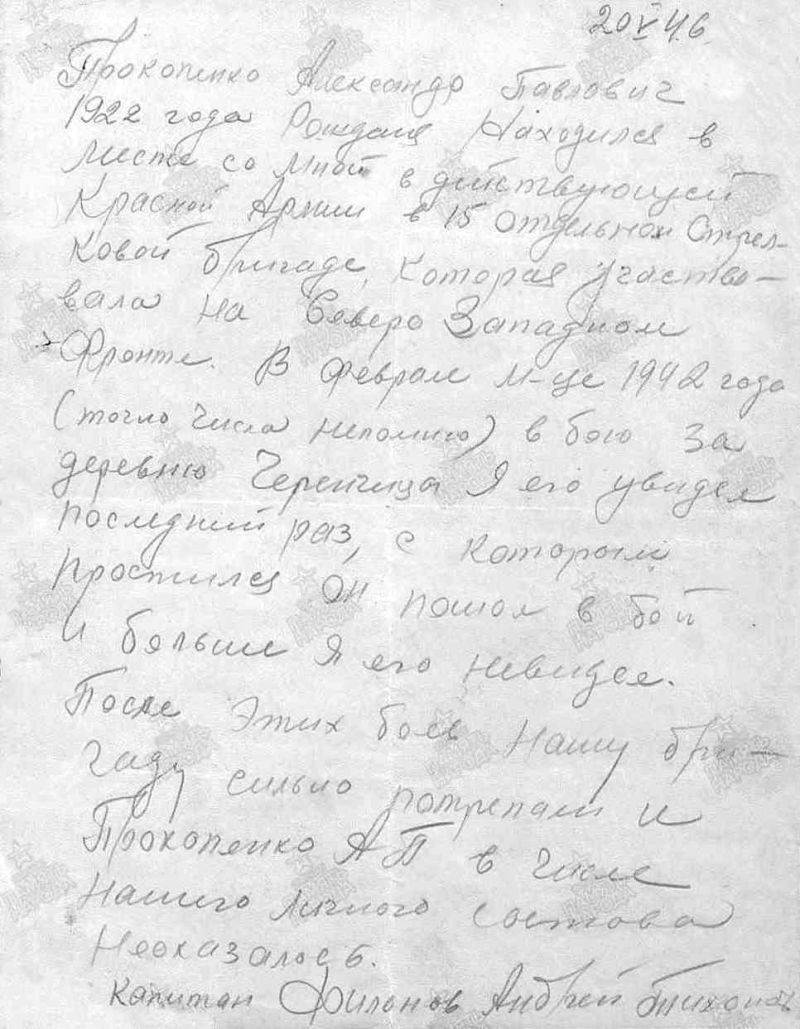 20 V 46
Прокопенко Александр Павлович
1922 года Рождения Находился в
месте со мной в действующей
Красной Армии в 15 отдельной Стрел-
ковой бригаде, которая участво-
вала на Северо Западном
Фронте. В феврале м-це 1942 года
(точло числа непомню) в бою за
деревню Черенчицы Я его увидел
последний раз, с которым
простился Он пошол в бой
и больше Я его невидел.
После Этих боев Нашу бри-
гаду сильно потрепали и
Прокопенко А П в числе
Нашего личного состава
Неоказалось.
Капитан Фильнов Андрей